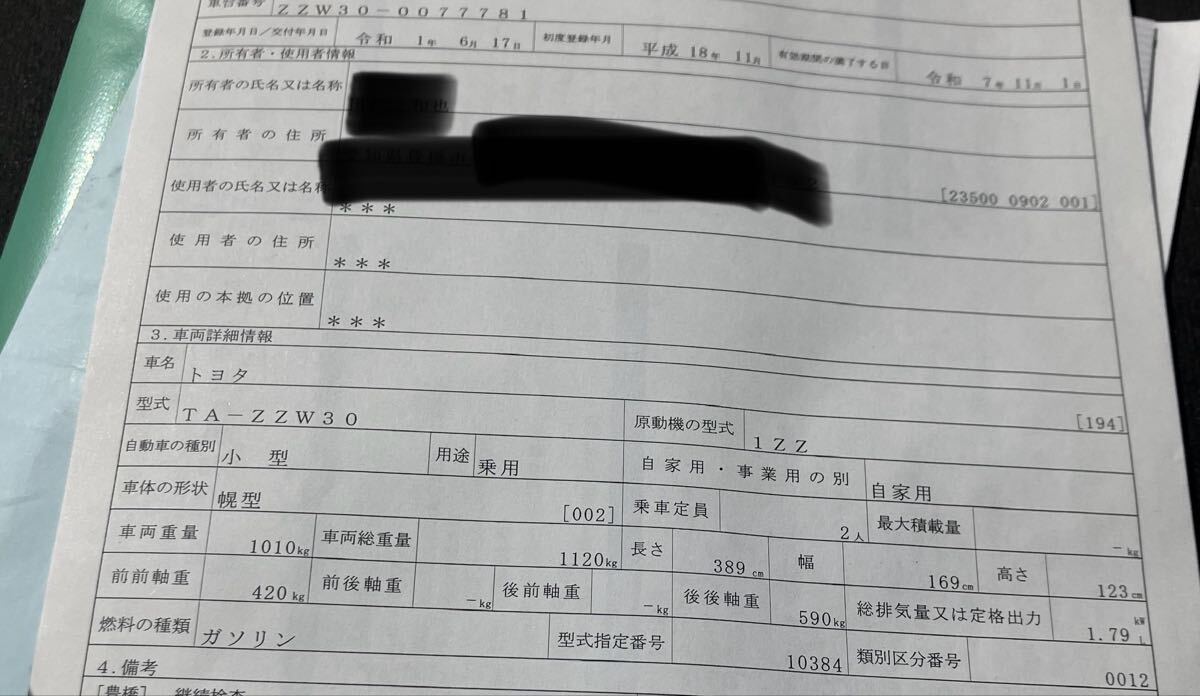 車台番号 ZZW30-0077781
登録年月日/交付年月日 令和 1年 6月 17日 初度登録年月 平成 18年 11月 有効期間の満了する日 令和 7年 11月 1日
2.所有者・使用者情報
所有者の氏名又は名称
所有者の住所
[23500 0902 001]
使用者の氏名又は名称 ***
使用者の住所 ***
使用の本拠の位置 ***
3.車両詳細情報
車名 トヨタ
[194]
型式 TA-ZZW30 原動機の型式 1ZZ
自動車の種別 小型 用途 乗用 自家用・事業用の別 自家用
車体の形状 幌型 [002] 乗車定員 2人 最大積載量 -kg
車両重量 1010kg 車両総重量 1120kg 長さ 389cm 幅 169cm 高さ 123cm
前前軸重 420kg 前後軸重 -kg 後前軸重 -kg 後後軸重 590kg 総排気量又は定格出力 1.79 kW L
燃料の種類 ガソリン 型式指定番号 10384 類別区分番号 0012
4.備考
[豊橋] 継続検査